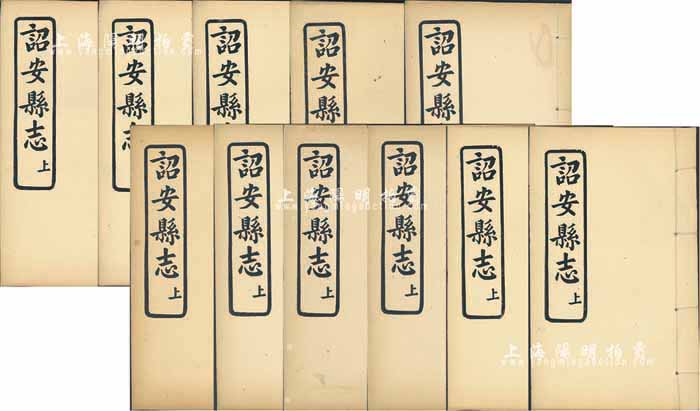 詔安縣志 上
詔安縣志
詔安縣
詔安縣
詔安縣
詔安縣志 上
詔安縣志 上
詔安縣志 上
詔安縣志 上
詔安縣志 上
詔安縣志 上
上海陽明拍賣
www.yangmingauction.com
上海陽明拍賣
www.yangmingauction.com
上海陽明拍賣
www.yangmingauction.com